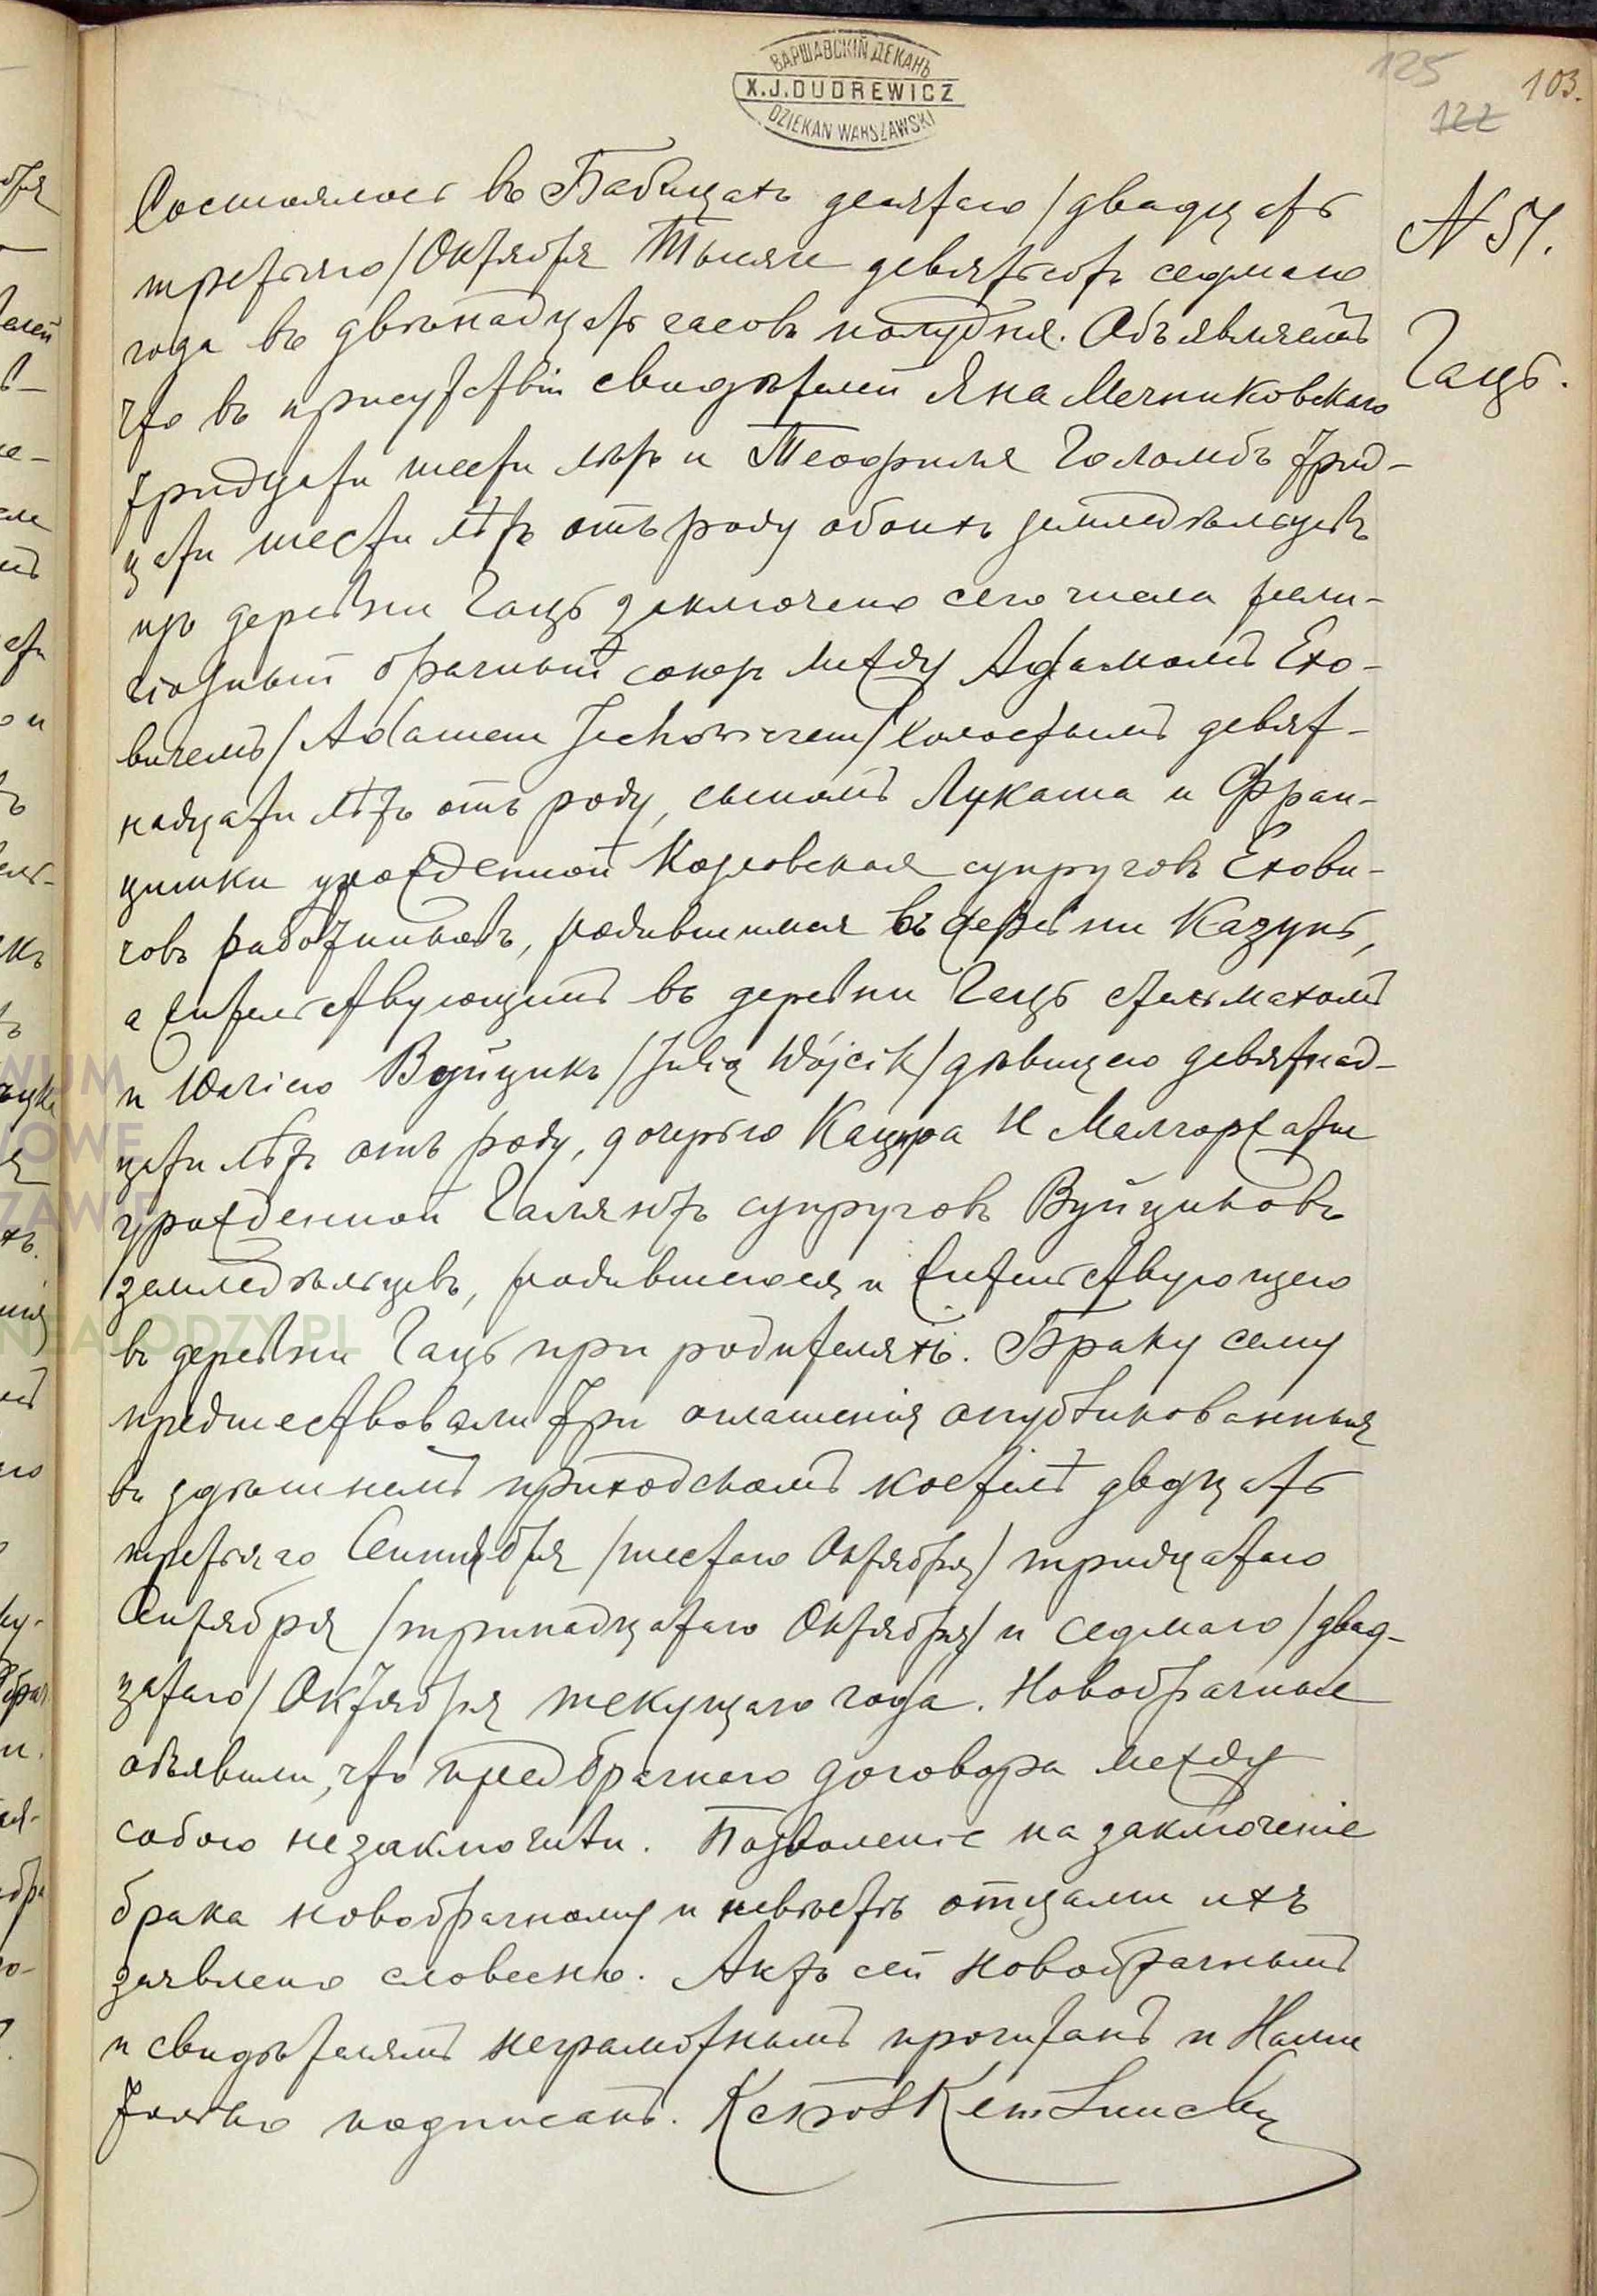 ВАРШАВСКІЙ ДЕКАНЪ
X. J. DUDREWICZ
DZIEKAN WARSZAWSKI
125
122
103.
N 57.
Гаць.
Состоялось въ Бабицахъ десятаго /двадцать
третьяго/ Октября Тысяча девятьсотъ седмаго
года въ двѣнадцать часовъ полудня. Объявляемъ
что въ присутствіи свидѣтелей Яна Мечниковскаго
тридцати шести лѣтъ и Теофиля Голомбъ трид-
цати шести лѣтъ отъ роду обоихъ земледѣльцевъ
изъ деревни Гаць заключено сего числа рели-
гіозный брачный союзъ между Адамомъ Ехо-
вичемъ /Adamem Jechowiczem/ холостымъ девят-
надцати лѣтъ отъ роду, сыномъ Лукаша и Фран-
цишки урожденной Козловская супруговъ Ехови-
човъ работниковъ, родившимся въ деревни Казунь,
а жительствующимъ въ деревни Гаць стельмахомъ
и Юліею Вуйцикъ /Julią Wójcik/ дѣвицею девятнад-
цати лѣтъ отъ роду, дочерью Кацпра и Малгоржаты
урожденной супруговъ Вуйциковъ
земледѣльцевъ, родившеюся и жительствующею
въ деревни Гаць при родителяхъ. Браку сему
предшествовали три оглашенія опубликованныя
въ здѣшнемъ приходскомъ костелѣ двадцать
третьяго Сентября /шестаго Октября/ тридцатаго
Сентября /тринадцатаго Октября/ и седмаго /двад-
цатаго/ Октября текущаго года. Новобрачные
объявили, что предбрачнаго договора между
собою не заключили. Позволеніе на заключеніе
брака новобрачному и невѣстѣ отцами ихъ
заявлено словесно. Актъ сей новобрачнымъ
и свидѣтелямъ неграмотнымъ прочитанъ и Нами
только подписанъ.